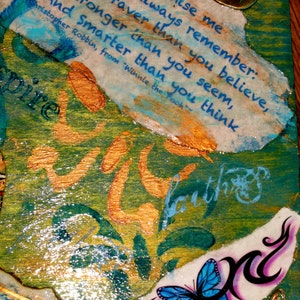 ise me
ways remember:
raver than you believe,
ronger than you seem,
nd smarter than you think
topher Robbin, from Winnie the
pire
faith